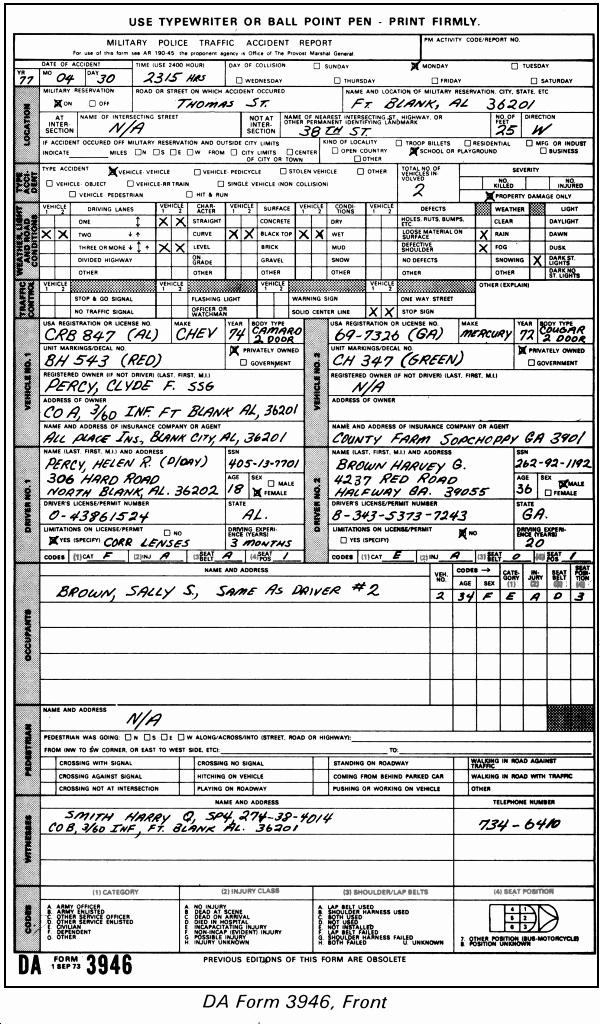 USE TYPEWRITER OR BALL POINT PEN - PRINT FIRMLY.
MILITARY POLICE TRAFFIC ACCIDENT REPORT
For use of this form see AR 190-45 the proponent agency is Office of The Provost Marshal General.
PM ACTIVITY CODE/REPORT NO.
DATE OF ACCIDENT TIME (USE 2400 HOUR) DAY OF COLLISION SUNDAY MONDAY TUESDAY
YR 77 MO 04 DAY 30 2315 HRS WEDNESDAY THURSDAY FRIDAY SATURDAY
LOCATION
MILITARY RESERVATION ROAD OR STREET ON WHICH ACCIDENT OCCURED NAME AND LOCATION OF MILITARY RESERVATION, CITY, STATE, ETC
ON OFF THOMAS ST. FT. BLANK, AL 36201
AT INTER-SECTION NAME OF INTERSECTING STREET N/A NOT AT INTER-SECTION NAME OF NEAREST INTERSECTING ST, HIGHWAY, OR OTHER PERMANENT IDENTIFYING LANDMARK 38TH ST. NO. OF FEET 25 DIRECTION W
IF ACCIDENT OCCURED OFF MILITARY RESERVATION AND OUTSIDE CITY LIMITS KIND OF LOCALITY TROOP BILLETS RESIDENTIAL MFG OR INDUST
INDICATE MILES N S E W FROM CITY LIMITS CENTER OF CITY OR TOWN OPEN COUNTRY SCHOOL OR PLAYGROUND BUSINESS OTHER
TYPE ACCI-DENT
TYPE ACCIDENT VEHICLE- VEHICLE VEHICLE- PEDICYCLE STOLEN VEHICLE OTHER
VEHICLE- OBJECT VEHICLE-RR TRAIN SINGLE VEHICLE (NON COLLISION)
VEHICLE- PEDESTRIAN HIT & RUN
TOTAL NO. OF VEHICLES IN-VOLVED 2 SEVERITY NO. KILLED NO. INJURED PROPERTY DAMAGE ONLY
WEATHER LIGHT AND ROAD CONDITIONS
VEHICLE 1 2 DRIVING LANES VEHICLE 1 2 CHAR-ACTER VEHICLE 1 2 SURFACE VEHICLE 1 2 CONDI-TIONS VEHICLE 1 2 DEFECTS WEATHER LIGHT
ONE X X STRAIGHT CONCRETE DRY HOLES, RUTS, BUMPS, ETC. CLEAR DAYLIGHT
X X TWO CURVE X X BLACK TOP X X WET LOOSE MATERIAL ON SURFACE X RAIN DAWN
THREE OR MONE X X LEVEL BRICK MUD DEFECTIVE SHOULDER X FOG DUSK
DIVIDED HIGHWAY ON GRADE GRAVEL SNOW NO DEFECTS SNOWING X DARK ST. LIGHTS
OTHER OTHER OTHER OTHER OTHER OTHER DARK NO ST. LIGHTS
TRAFFIC CONTROL
VEHICLE 1 2 VEHICLE 1 2 VEHICLE 1 2 VEHICLE 1 2 OTHER (EXPLAIN)
STOP & GO SIGNAL FLASHING LIGHT WARNING SIGN ONE WAY STREET
NO TRAFFIC SIGNAL OFFICER OR WATCHMAN SOLID CENTER LINE X X STOP SIGN
VEHICLE NO. 1
USA REGISTRATION OR LICENSE NO. MAKE YEAR BODY TYPE
CRB 847 (AL) CHEV 74 CAMARO 2 DOOR
UNIT MARKINGS/DECAL NO. PRIVATELY OWNED
BH 543 (RED) GOVERNMENT
REGISTERED OWNER (IF NOT DRIVER) (LAST, FIRST, M.I.)
PERCY, CLYDE F. SSG
ADDRESS OF OWNER
CO A, 3/60 INF FT BLANK AL, 36201
NAME AND ADDRESS OF INSURANCE COMPANY OR AGENT
ALL PLACE INS., BLANK CITY, AL, 36201
VEHICLE NO. 2
USA REGISTRATION OR LICENSE NO. MAKE YEAR BODY TYPE
69-7326 (GA) MERCURY 72 COUGAR 2 DOOR
UNIT MARKINGS/DECAL NO. PRIVATELY OWNED
CH 347 (GREEN) GOVERNMENT
REGISTERED OWNER (IF NOT DRIVER) (LAST, FIRST, M.I.)
N/A
ADDRESS OF OWNER
NAME AND ADDRESS OF INSURANCE COMPANY OR AGENT
COUNTY FARM SOPCHOPPY GA 3901
DRIVER NO. 1
NAME (LAST, FIRST, M.I.) AND ADDRESS SSN
PERCY, HELEN R. (D/DAY) 405-13-7701
306 HARD ROAD AGE SEX MALE
NORTH BLANK, AL. 36202 18 FEMALE
DRIVER'S LICENSE/PERMIT NUMBER STATE
0-43861524 AL.
LIMITATIONS ON LICENSE/PERMIT NO DRIVING EXPERI-ENCE (YEARS)
YES (SPECIFY) CORR LENSES 3 MONTHS
CODES (1) CAT F (2) INJ A (3) SEAT BELT A (4) SEAT POS 1
DRIVER NO. 2
NAME (LAST, FIRST, M.I.) AND ADDRESS SSN
BROWN HARVEY G. 262-92-1192
4237 RED ROAD AGE SEX MALE
HALFWAY GA. 39055 36 FEMALE
DRIVER'S LICENSE/PERMIT NUMBER STATE
B-343-5373-7243 GA.
LIMITATIONS ON LICENSE/PERMIT NO DRIVING EXPERI-ENCE (YEARS)
YES (SPECIFY) 20
CODES (1) CAT E (2) INJ A (3) SEAT BELT D (4) SEAT POS 1
OCCUPANTS
NAME AND ADDRESS VEH. NO. CODES → AGE SEX CATE-GORY (1) IN-JURY (2) SEAT BELT (3) SEAT POSI-TION (4)
BROWN, SALLY S., SAME AS DRIVER #2 2 34 F E A D 3
PEDESTRIAN
NAME AND ADDRESS
N/A
PEDESTRIAN WAS GOING: N S E W ALONG/ACROSS/INTO (STREET, ROAD OR HIGHWAY):
FROM (NW TO SW CORNER, OR EAST TO WEST SIDE, ETC): TO:
CROSSING WITH SIGNAL CROSSING NO SIGNAL STANDING ON ROADWAY WALKING IN ROAD AGAINST TRAFFIC
CROSSING AGAINST SIGNAL HITCHING ON VEHICLE COMING FROM BEHIND PARKED CAR WALKING IN ROAD WITH TRAFFIC
CROSSING NOT AT INTERSECTION PLAYING ON ROADWAY PUSHING OR WORKING ON VEHICLE OTHER
WITNESSES
NAME AND ADDRESS TELEPHONE NUMBER
SMITH HARRY Q, SP4, 274-38-4014
CO B, 3/60 INF, FT. BLANK AL. 36201 734-6410
CODES
(1) CATEGORY (2) INJURY CLASS (3) SHOULDER/LAP BELTS (4) SEAT POSITION
A. ARMY OFFICER A. NO INJURY A. LAP BELT USED
B. ARMY ENLISTED B. DEAD AT SCENE B. SHOULDER HARNESS USED
C. OTHER SERVICE OFFICER C. DEAD ON ARRIVAL C. BOTH USED 4 1
D. OTHER SERVICE ENLISTED D. DIED IN HOSPITAL D. NOT USED 5 2
E. CIVILIAN E. INCAPITATING INJURY E. NOT INSTALLED 6 3
F. DEPENDENT F. NON-INCAP (EVIDENT) INJURY F. LAP BELT FAILED
O. OTHER G. POSSIBLE INJURY G. SHOULDER HARNESS FAILED 7. OTHER POSITION (BUS-MOTORCYCLE)
H. INJURY UNKNOWN H. BOTH FAILED U. UNKNOWN 8. POSITION UNKNOWN
DA FORM 1 SEP 73 3946 PREVIOUS EDITIONS OF THIS FORM ARE OBSOLETE
DA Form 3946, Front